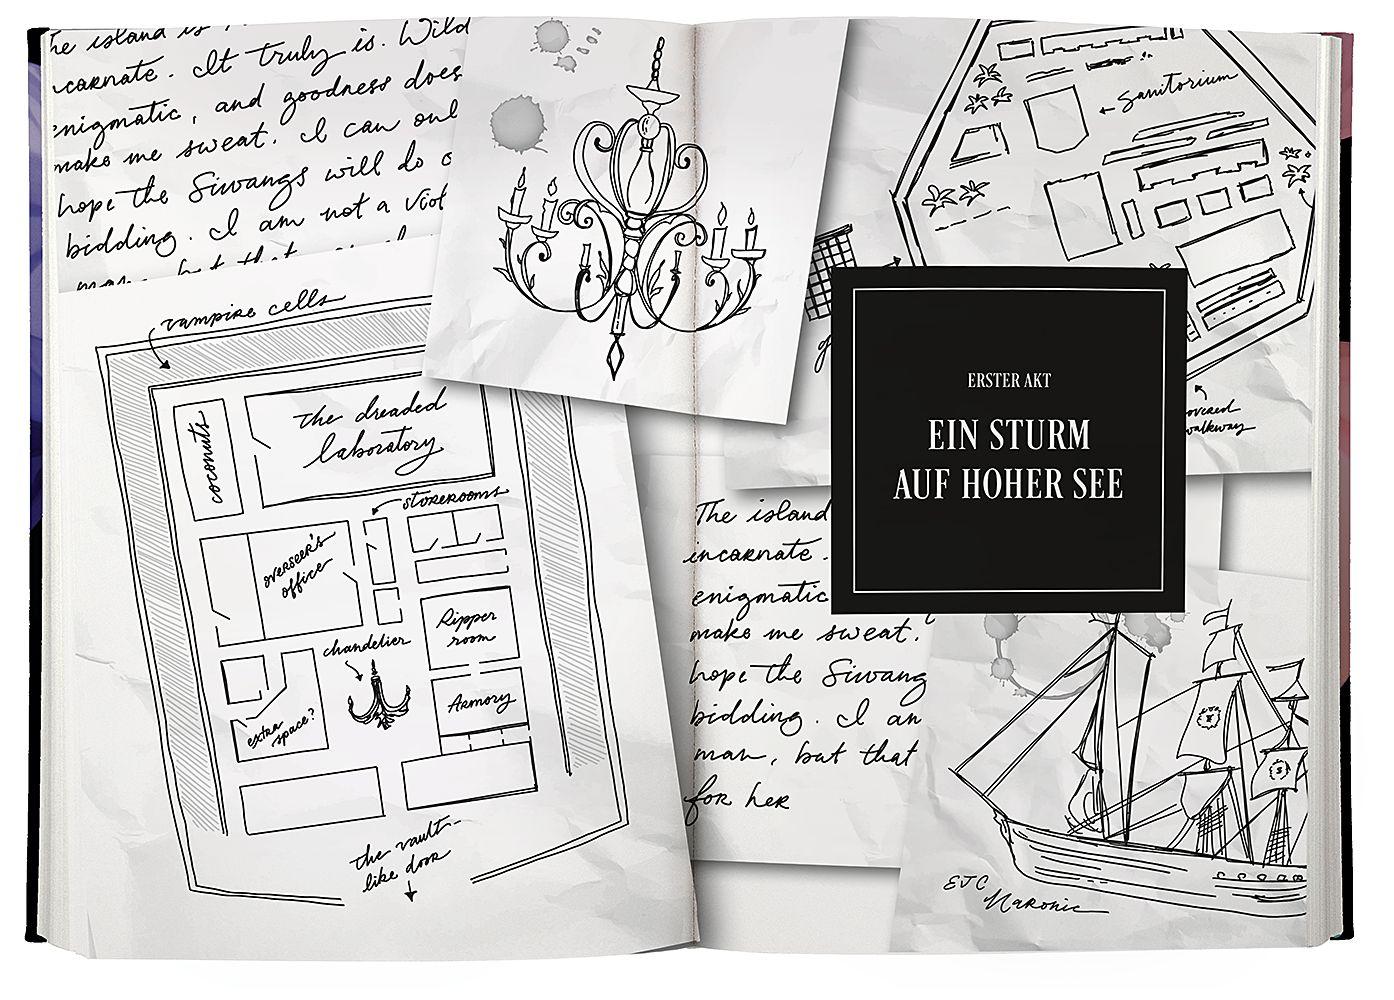 The island is
incarnate. It truly is. Wild
enigmatic, and goodness does
make me sweat. I can onl
hope the Siwangs will do
bidding. I am not a viol
man, but that
vampire cells
coconuts
the dreaded
laboratory
storerooms
overseer's
office
chandelier
Ripper
room
extra
space?
Armory
the vault-
like door
Sanitorium
covered
walkway
ERSTER AKT
EIN STURM
AUF HOHER SEE
The island
incarnate.
enigmatic
make me sweat.
hope the Siwang
bidding. I am
man, but that
for her
EJC
Naronic